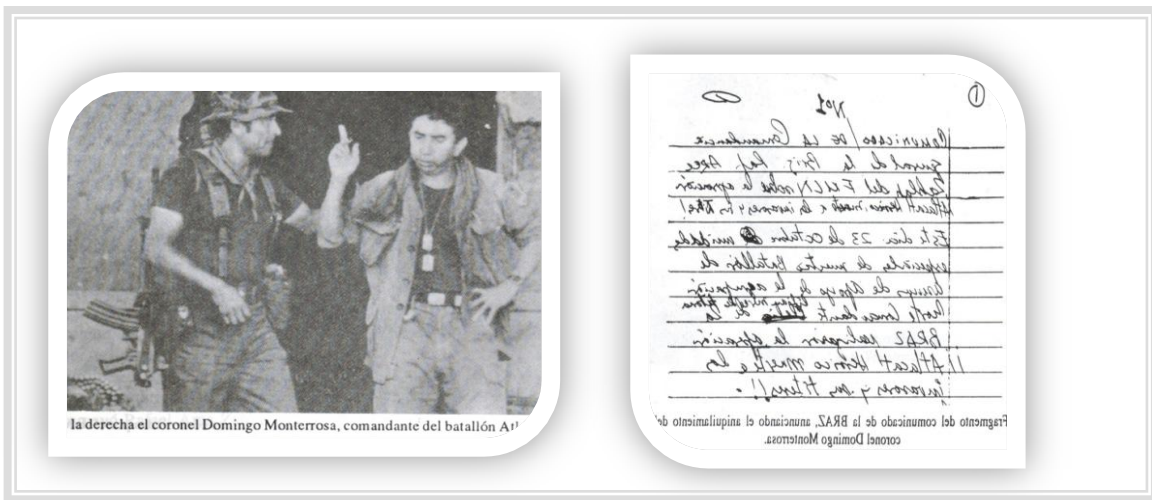 la derecha el coronel Domingo Monterrosa, comandante del batallón Atl
1
Nº1
Comunicado de la Comandancia
general de la Brig Raf Arce
Zablah del FMLN sobre la operación
Atlacatl Heroico, muerte a los invasores y sus
Este día 23 de octubre unidades
especiales de nuestro Batallón de
Armas de Apoyo de la agrupación
Norte Comandante de la
BRAZ realizaron la operación
!! Atlacatl Heroico muerte a los
invasores y sus titeres!!.
Fragmento del comunicado de la BRAZ, anunciando el aniquilamiento del
coronel Domingo Monterrosa.